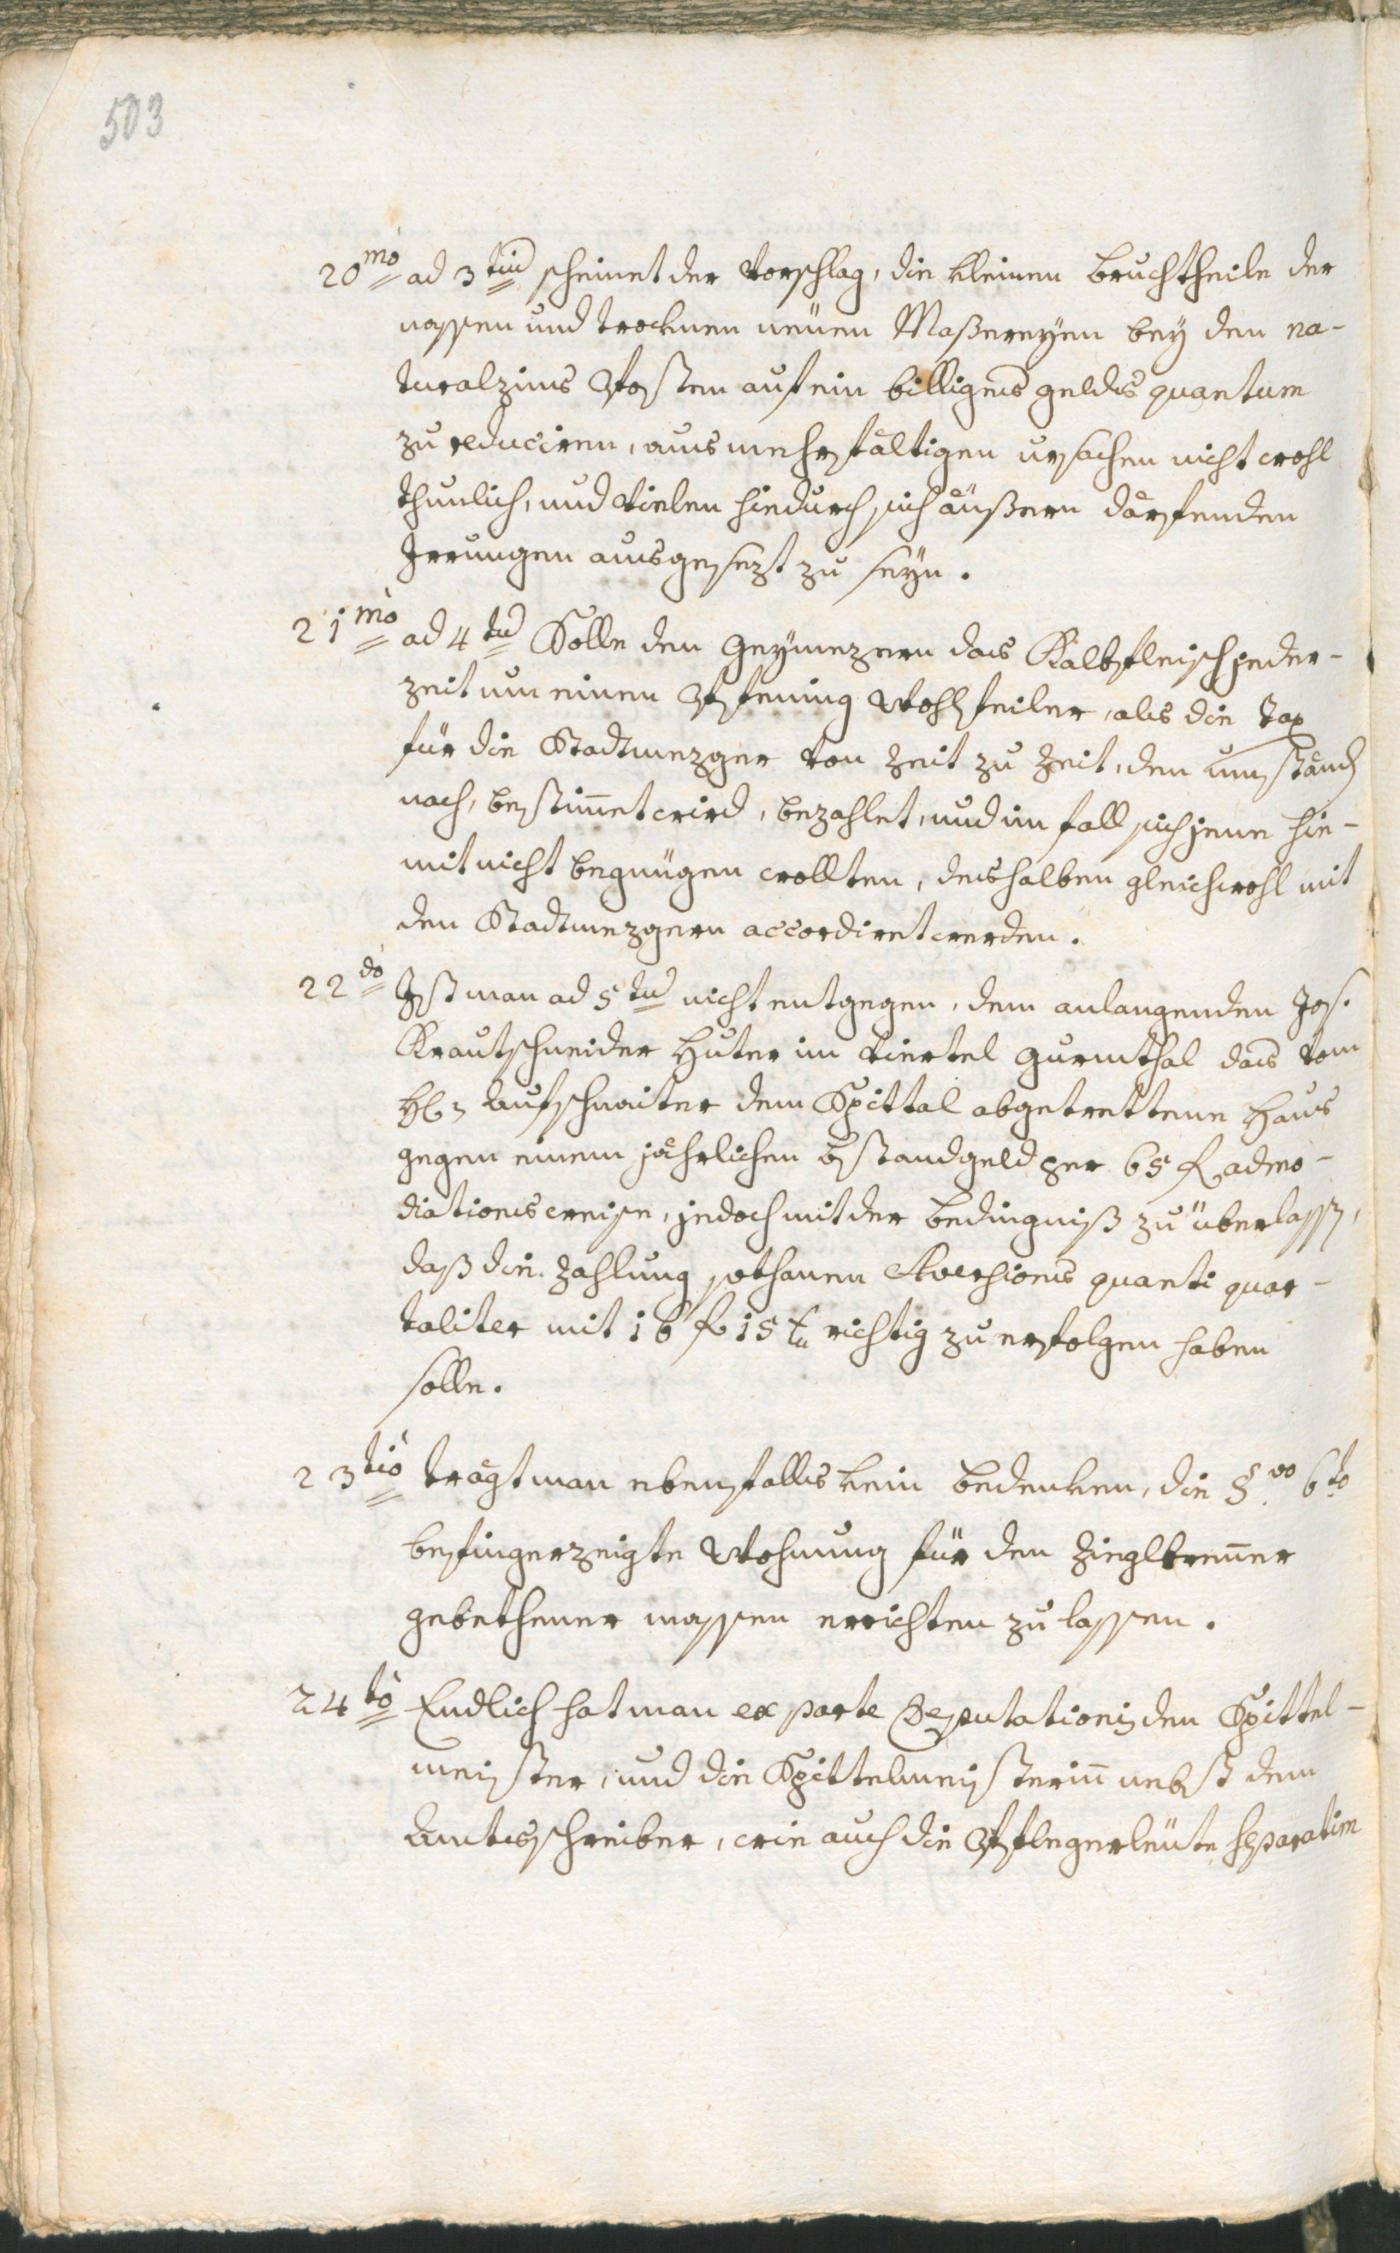 503
20mo ad 3tiū scheinet der Vorschlag, die kleinen Bruchtheile der
nassen und trocknen neüen Maßereyen bey den na-
turalzins Posten auf ein billiges geldes quantum
zu reduciren, aus mehrfältigen ursachen nicht wohl
thunlich, und vielen hiedurch sich äußern därfenden
Irrungen ausgesezt zu seyn.
21mo ad 4tū Solle den Geymezgern das Kalbfleisch jeder-
zeit um einen Pfening wohlfeiler, als die Tax
für die Stadtmezger von Zeit zu Zeit, den umständ
nach, bestimet wird, bezahlet, und im fall sich jene hie-
mit nicht begnügen wollten, deshalben gleichwohl mit
den Stadtmezgern accordiret werden.
22do Ist man ad 5tū nicht entgegen, dem anlangenden Jos.
Krautschneider Huter im Viertel Gurmthal das vom
H: Aufschnaiter dem Spittal abgetrettene Haus
gegen einem jährlichen Bstandgeld per 65 f admo-
diations weise, jedoch mit der bedingniß zu überlassn,
daß die Zahlung sothanen Aversions quanti quar-
taliter mit 16 f 15 xr richtig zu erfolgen haben
solle.
23tio tragt man ebenfalls kein bedenken, die §vo 6to
befingerzeigte Wohnung für den Zieglbrenner
gebethener massen errichten zu lassen.
24to Endlich hat man ex parte Deputationis den Spittel-
meister, und die Spittelmeisterin nebst dem
Amtsschreiber, wie auch die Pflegerleüte separatim